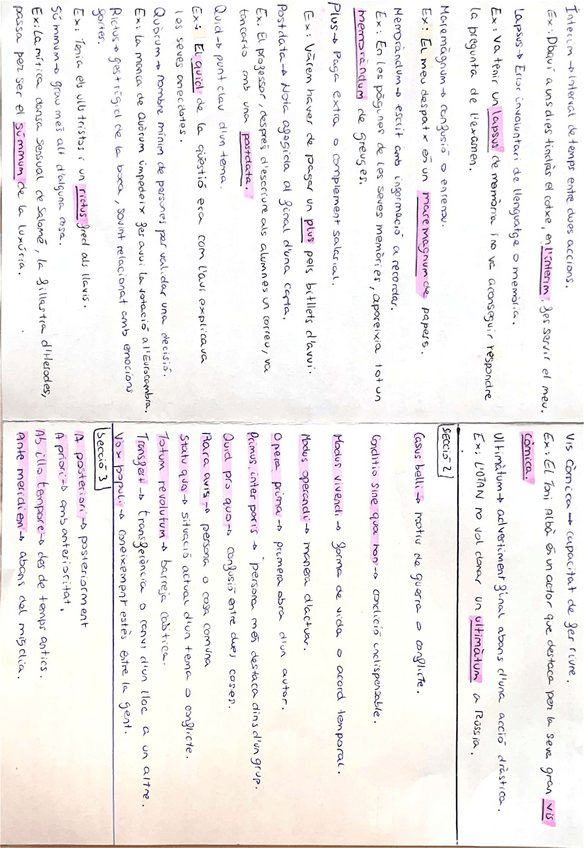 Interim → interval de temps entre dues accions.
Ex: D'aquí a uns dies tindràs el cotxe, en l'interim, fes servir el meu.
Lapsus → Error involuntari de llenguatge o memòria.
Ex: Va tenir un lapsus de memòria i no va aconseguir respondre
la pregunta de l'examen.
Maremàgnum → confusió o enrenou.
Ex: El meu despatx és un maremagnum de papers.
Memoràndum → escrit amb informació a recordar.
Ex: En les pàgines de les seves memòries, apareixia tot un
memoràndum de greuges.
Plus → Paga extra o complement salarial.
Ex: Vàrem haver de pagar un plus pels bitllets d'avui.
Postdata → Nota afegida al final d'una carta.
Ex: El professor, després d'escriure als alumnes un correu, va
tancar-lo amb una postdata.
Quid → punt clau d'un tema.
Ex: El quid de la qüestió era com l'avi explicava
les seves anècdotes.
Quòrum → nombre mínim de persones per validar una decisió.
Ex: La manca de Quòrum impedeix fer avui la votació a l'Eurocambra.
Rictus → gest rígid de la boca, sovint relacionat amb emocions
fortes.
Ex: Tenia els ulls tristos i un rictus fred als llavis.
Súmmum → grau més alt d'alguna cosa.
Ex: La mítica dansa sensual de Salomé, la fillastra d'Herodes,
passa per ser el súmmum de la luxúria.
Vis còmica → capacitat de fer riure.
Ex: El Toni Albà és un actor que destaca per la seva gran vis
còmica.
Ultimàtum → advertiment final abans d'una acció dràstica.
Ex: L'OTAN no vol donar un ultimàtum a Rússia.
Secció 2
Casus belli → motiu de guerra o conflicte.
Conditio sine qua non → condició indispensable.
Modus vivendi → forma de vida o acord temporal.
Modus operandi → manera d'actuar.
Opera prima → primera obra d'un autor.
Primus inter paris → persona més destaca dins d'un grup.
Quid pro quo → confusió entre dues coses.
Rara avis → persona o cosa comuna
Statu quo → situació actual d'un tema o conflicte.
Totum revolutum → barreja caòtica.
Transfert → transferència o canvi d'un lloc a un altre.
Vox populi → coneixement estès entre la gent.
Secció 3
A posteriori → posteriorment
A priori → amb anterioritat.
Ab illo tempore → des de temps antics.
Ante meridiem → abans del migdia.